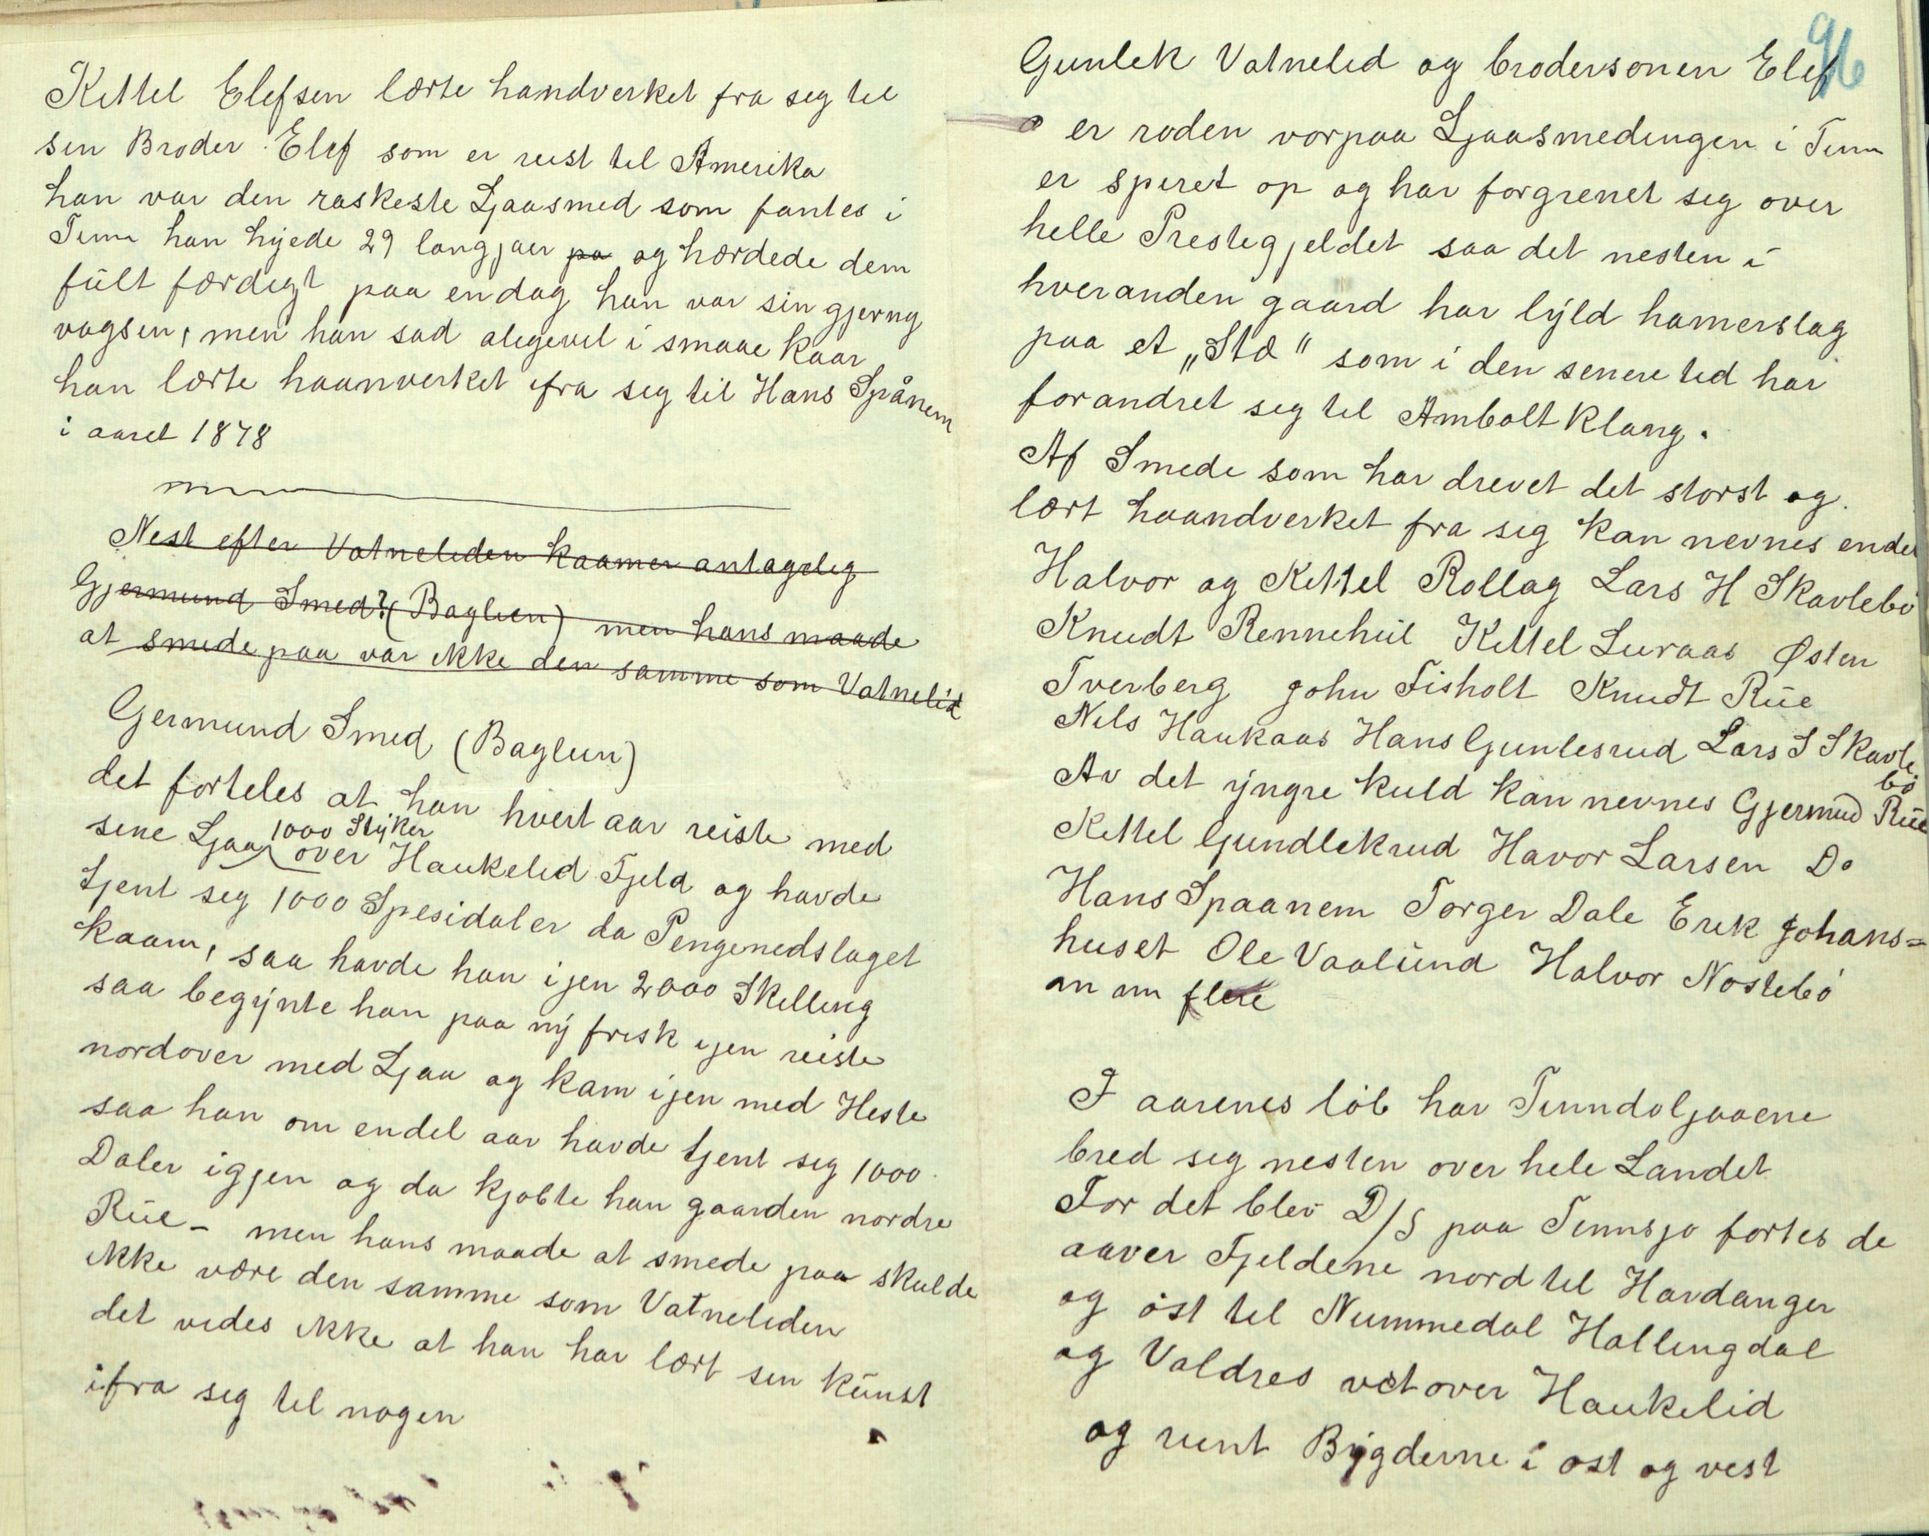 Kittel Elefsen lærte handverket fra seg til
sin Broder Elef som er reist til Amerika
han var den raskeste Ljaasmed som fantes i
Tinn han hyede 29 langjaer pa og hærdede dem
fült færdigt paa en dag han var sin gjerng
vagsen, men han sad alegevel i smaae kaar
han lærte haanverket ifra seg til Hans Spånem
i aaret 1878
Nest efter Vatneliden kaamer antagelig
Gjermund Smed? (Baglien) men hans maade
at smede paa var ikke den samme som Vatnelid
Germund Smed (Baglien)
det forteles at han hvert aar reiste med
1000 Styker
sine Ljaa over Haukelid Fjeld og havde
tjent seg 1000 Spesidaler da Pengenedslaget
kaam, saa havde han ijen 2000 Skilling
saa begynte han paa ny frisk ijen reiste
nordover med Ljaa og kam ijen med Heste
saa han om endel aar havde tjent seg 1000
Daler igjen og da kjøbte han gaarden nordre
Rüe - men hans maade at smede paa skulde
ikke være den samme som Vatneliden
det vides ikke at han har lært sin künst
ifra seg til nogen
96
Gunlek Vatnelid og brodersonen Elef
er roden vorpaa Ljaasmedingen i Tinn
er spiret op og har forgrenet seg over
helle Prestegjeldet saa det nesten i
hveranden gaard har lyld hamerslag
paa et „Stæ" som i den senere tid har
forandret seg til Ambolt klang.
Af Smede som har drevet det størst og
lært haandverket fra sig kan nevnes endel
Halvor og Kittel Rollag Lars H Skavlebö
Knudt Rennehüil Kittel Luraas Østen
Tverberg John Fisholt Knudt Rüe
Nils Haukaas Hans Gunlesrud Lars S Skavle
bö
Av det yngre kuld kan nevnes Gjermund Rüe
Kittel Gundlekrud Havor Larsen Do
Hans Spaanem Torger Dale Erik Johans=
huset Ole Vaalünd Halvor Nostebö
an am flere
I aarenes löb har Tinndoljaaene
bred seg nesten over hele Landet
For det blev D/S paa Tinnsjo førtes de
aaver Fjeldene nord til Hardanger
og öst til Nummedal Hallingdal
og Valdres vest over Haukelid
og runt Bygderne i ost og vest